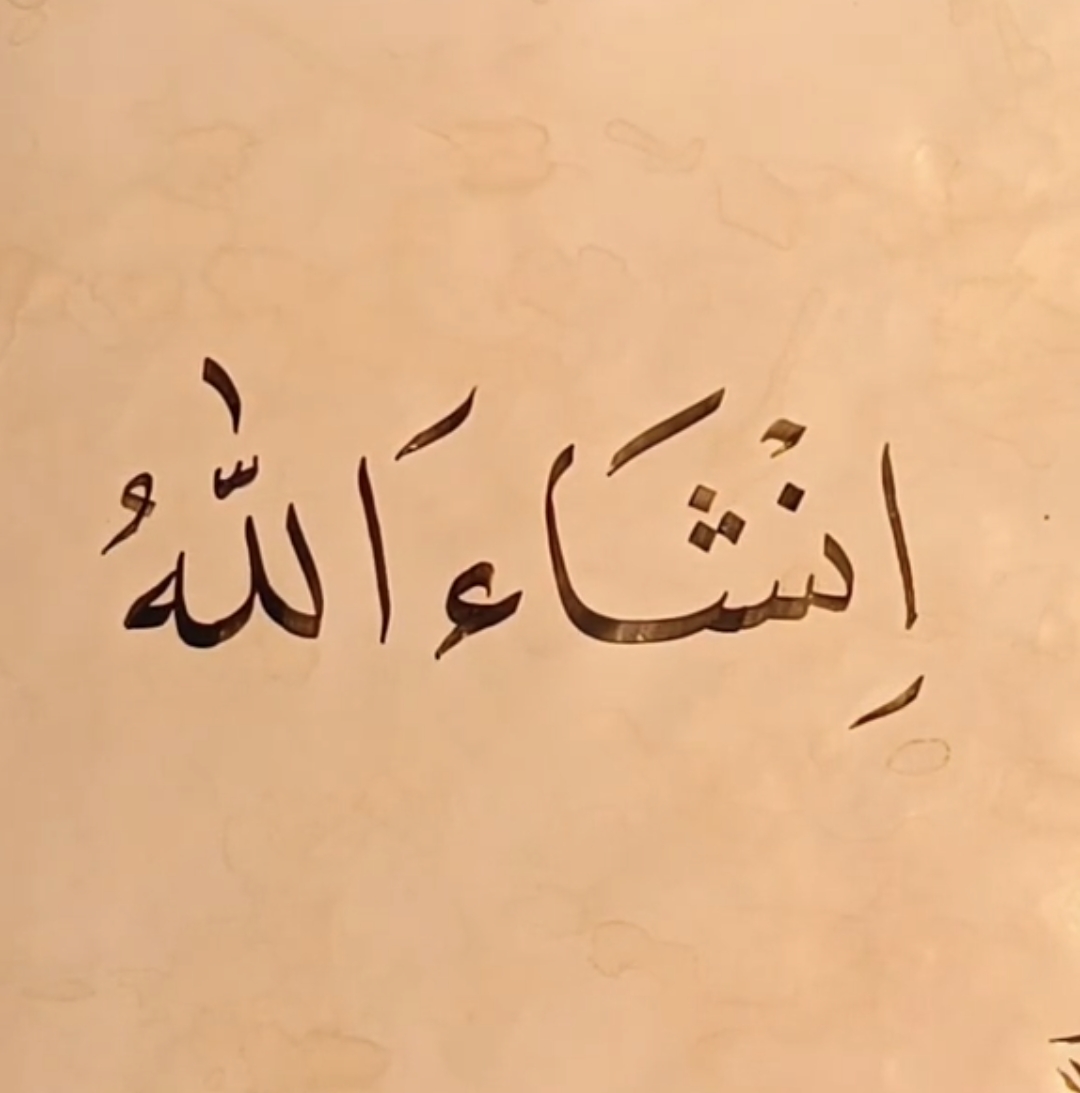 اِنْشَاءَ اللّٰهُ